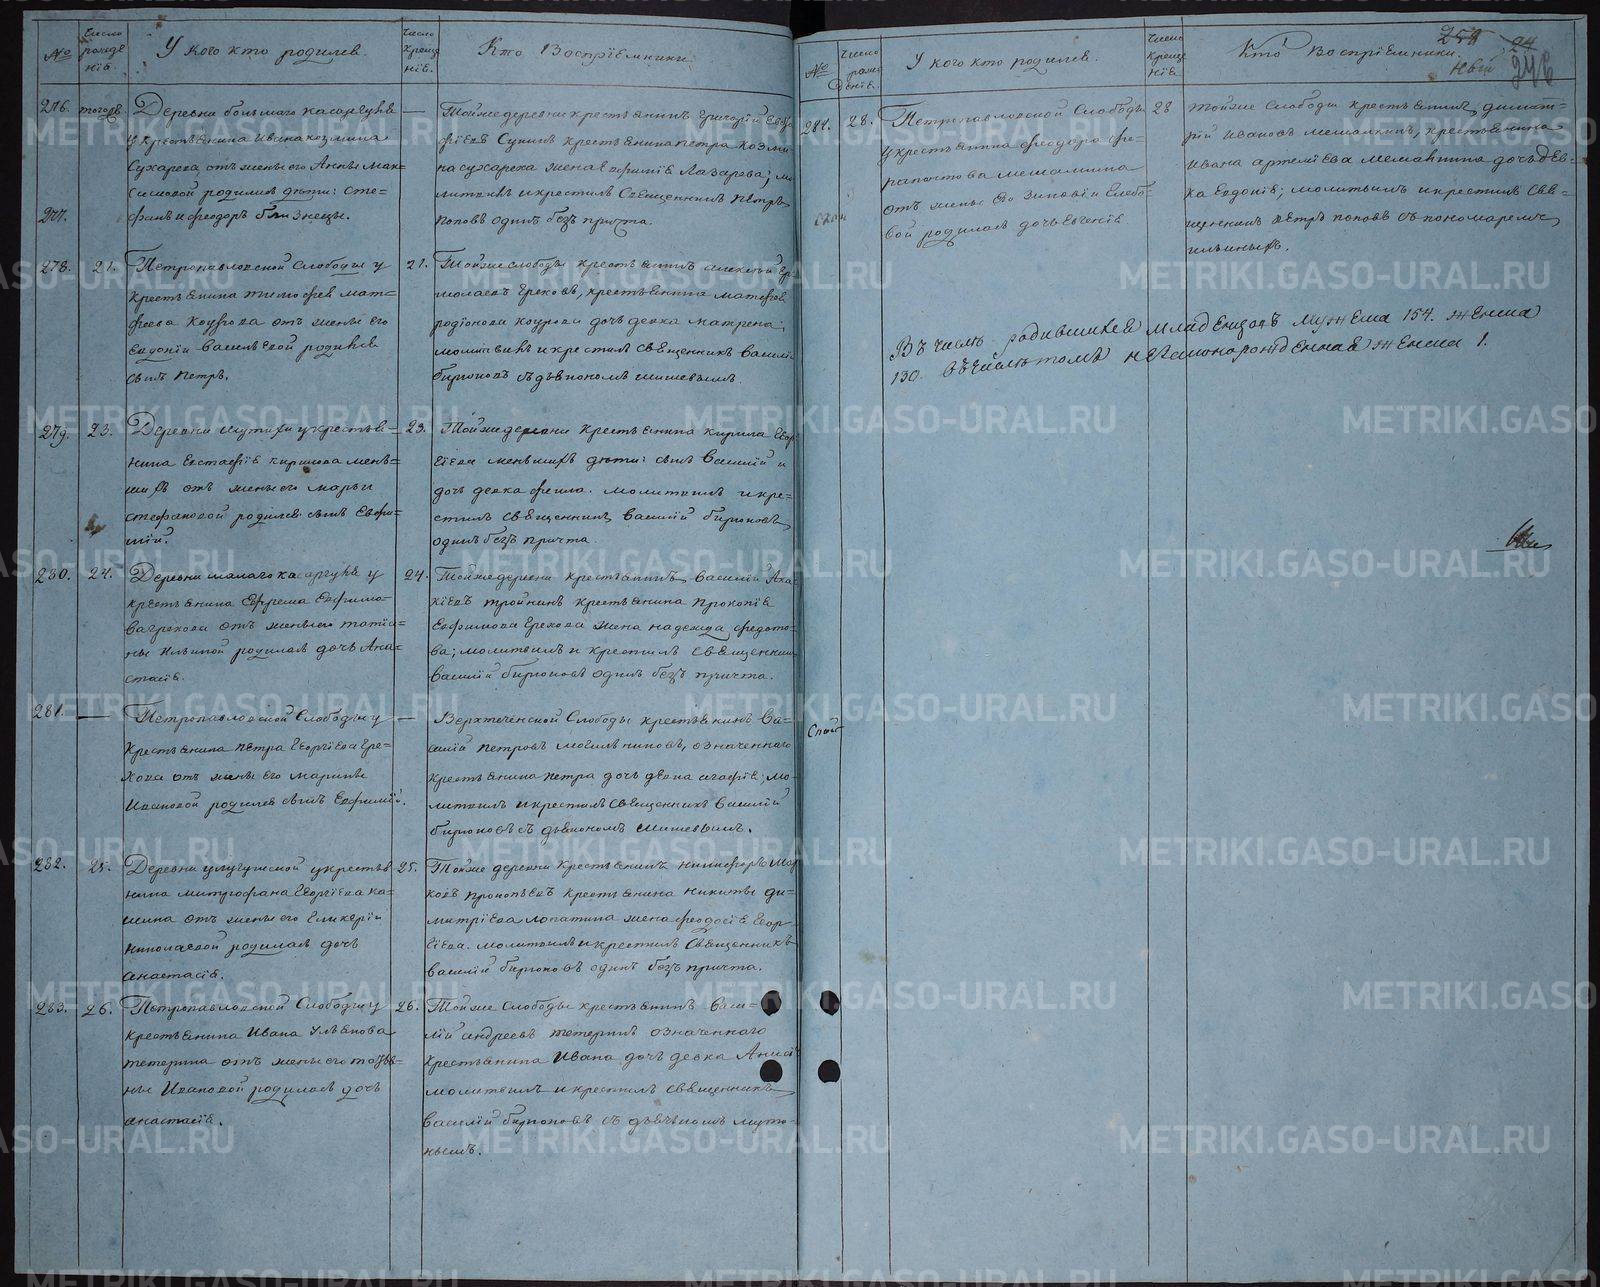 №
Число рожденія.
У кого кто родился.
Число крещенія.
Кто Воспріемники
276. тогожъ
Деревни большаго касаргуля
у крестьянина Ивана козмина
Сухарева отъ жены его Анны Мак-
симовой родились дѣти: Сте-
277.
фанъ и феодоръ близнецы.
— Тойже деревни крестьянинъ Григорій
Сунинъ крестьянина петра козми-
на сухарева жена Лазарева; мо-
литвилъ и крестилъ Священникъ Петръ
поповъ одинъ безъ причта.
278. 21.
Петропавловской Слободы у
крестьянина тимофея мат-
феева отъ жены его
Евдокіи васильевой родился
сынъ петръ.
21. Тойже слободы крестьянинъ алексѣй ер-
молаевъ Греховъ, крестьянина матфея
родіонова дочь девка матрена;
молитвилъ и крестилъ священникъ василій
бирюковъ съ дьякономъ шишевымъ.
279. 23.
Деревни у крестья-
нина Евстафія кирилова мень-
шихъ отъ жены его марьи
стефановой родился сынъ Евфи-
мій.
23. Тойже деревни крестьянина кирила Геор-
гіева меньшихъ дѣти: сынъ василій и
дочь девка фекла. молитвилъ и кре-
стилъ священникъ василій бирюковъ
одинъ безъ причта.
280. 24.
Деревни малаго касаргуля у
крестьянина Ефрема Евфимо-
ва грехова отъ жены его татья-
ны Ильиной родилась дочь Ана-
стасія.
24. Тойже деревни крестьянинъ василій Ака-
кіевъ тройнинъ крестьянина прокопія
Евфимова Грехова жена надежда федото-
ва; молитвилъ и крестилъ священникъ
василій бирюковъ одинъ безъ причта.
281. —
Петропавловской Слободы у
крестьянина петра Георгіева Гре-
хова отъ жены его марины
Ивановой родился сынъ Евфимій.
— Верхтеченской Слободы крестьянинъ Ва-
силій петровъ могильниковъ, означеннаго
крестьянина петра дочь девка агафія; мо-
литвилъ и крестилъ священникъ василій
бирюковъ съ дьякономъ шишевымъ.
282. 25.
Деревни у крестья-
нина митрофана Георгіева ка-
шина отъ жены его Гликеріи
николаевой родилась дочь
анастасія.
25. Тойже деревни крестьянинъ никифоръ мар-
ковъ прокопьевъ крестьянина никиты ди-
митріева лопатина жена феодосія Геор-
гіева. молитвилъ и крестилъ священникъ
василій бирюковъ одинъ безъ причта.
283. 26.
Петропавловской Слободы у
крестьянина Ивана Ульянова
тетерина отъ жены его татья-
ны Ивановой родилась дочь
анастасія.
26. Тойже слободы крестьянинъ васи-
лій андреевъ тетеринъ означеннаго
крестьянина Ивана дочь девка Анисія
молитвилъ и крестилъ священникъ
василій бирюковъ съ дьячкомъ
нымъ.
№
Число рожденія.
У кого кто родился.
Число крещенія
Кто Воспріемники.
246
284. 28.
Петропавловской Слободы
у крестьянина феодора фе-
рапонтова мешалкина
отъ жены его Зиновіи Глебо-
вой родилась дочь Евгенія.
28 тойже слободы крестьянинъ димит-
рій Ивановъ мешалкинъ, крестьянина
Ивана артеміева мешалкина дочь дев-
ка Евдокія; молитвилъ и крестилъ Свя-
щенникъ петръ поповъ съ пономаремъ
ильиныхъ.
Въ числѣ родившихся младенцовъ мужеска 154. женска
130. въ числѣ томъ незаконорожденная женска 1.